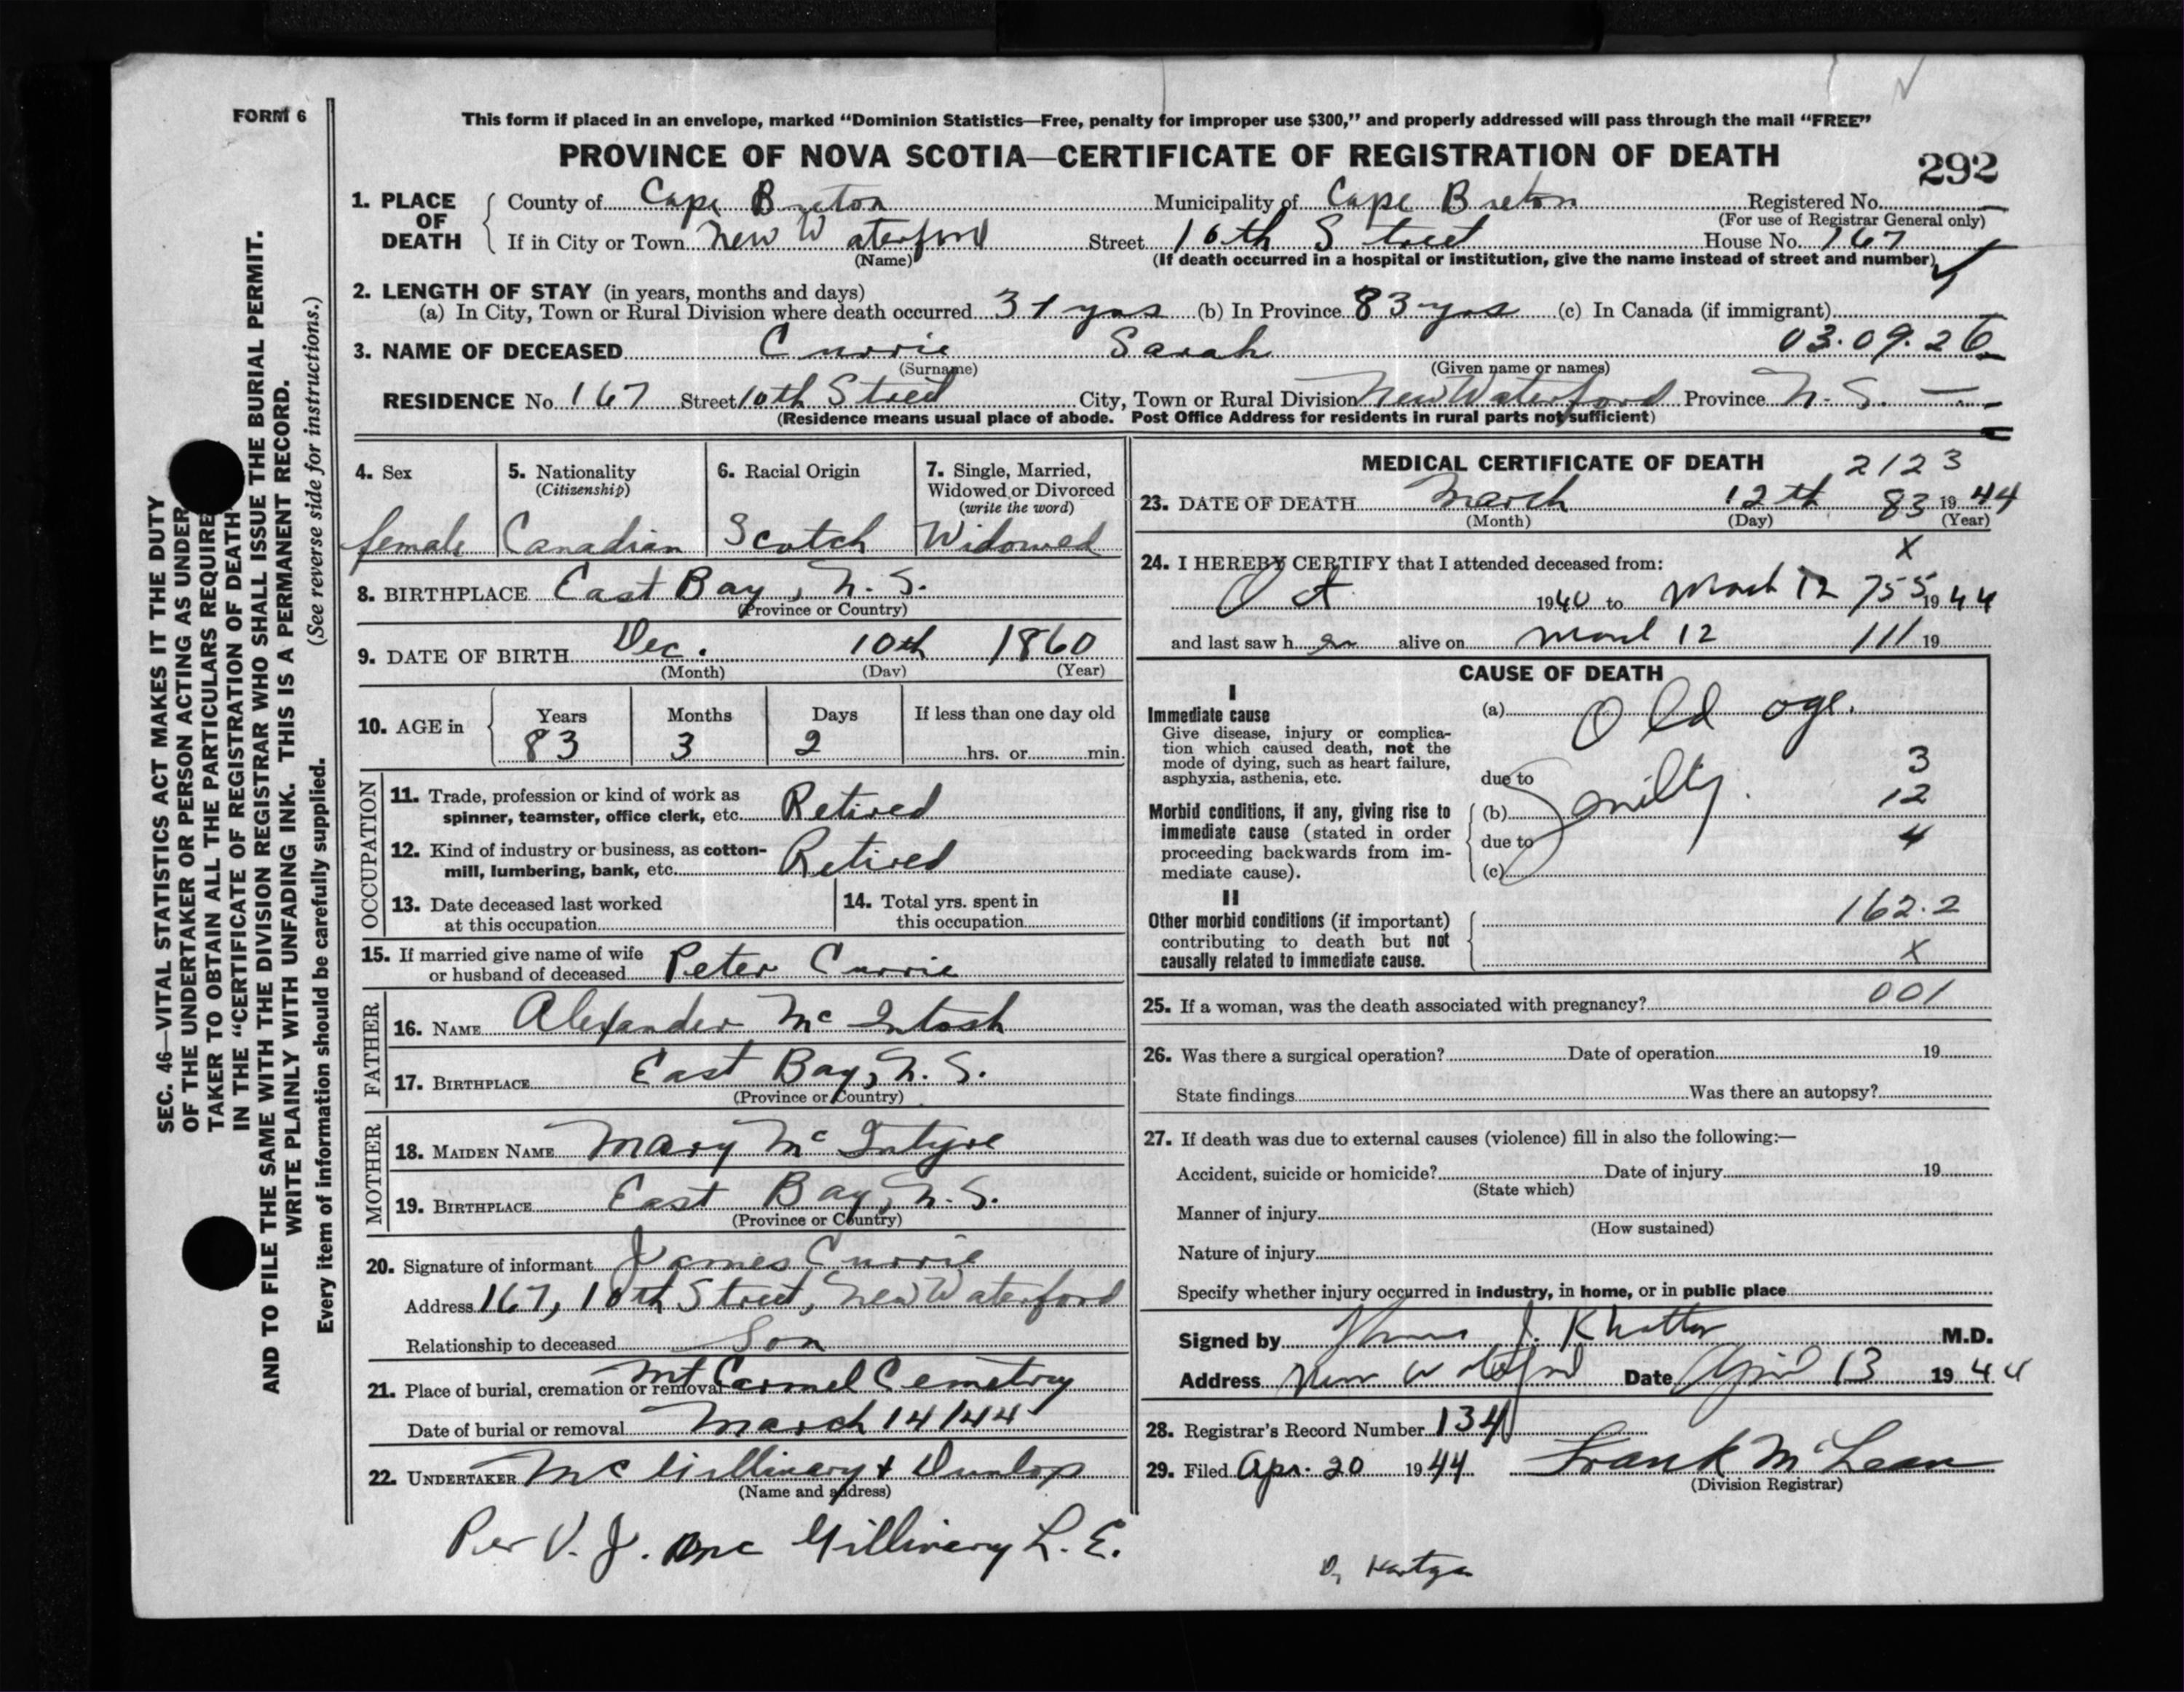 FORM 6
This form if placed in an envelope, marked "Dominion Statistics—Free, penalty for improper use $300," and properly addressed will pass through the mail "FREE"
PROVINCE OF NOVA SCOTIA—CERTIFICATE OF REGISTRATION OF DEATH
292
1. PLACE OF DEATH
County of Cape Breton Municipality of Cape Breton Registered No.
(For use of Registrar General only)
If in City or Town New Waterford Street 10th Street House No. 167
(Name) (If death occurred in a hospital or institution, give the name instead of street and number)
2. LENGTH OF STAY (in years, months and days)
(a) In City, Town or Rural Division where death occurred 31 yrs (b) In Province 83 yrs (c) In Canada (if immigrant)
3. NAME OF DECEASED Currie Sarah 03.09.26
(Surname) (Given name or names)
RESIDENCE No. 167 Street 10th Street City, Town or Rural Division New Waterford Province N. S.
(Residence means usual place of abode. Post Office Address for residents in rural parts not sufficient)
4. Sex
female
5. Nationality
(Citizenship)
Canadian
6. Racial Origin
Scotch
7. Single, Married,
Widowed or Divorced
(write the word)
Widowed
8. BIRTHPLACE East Bay, N. S.
(Province or Country)
9. DATE OF BIRTH Dec. 10th 1860
(Month) (Day) (Year)
10. AGE in Years Months Days If less than one day old
83 3 2 hrs. or min.
OCCUPATION
11. Trade, profession or kind of work as
spinner, teamster, office clerk, etc. Retired
12. Kind of industry or business, as cotton-
mill, lumbering, bank, etc. Retired
13. Date deceased last worked
at this occupation
14. Total yrs. spent in
this occupation
15. If married give name of wife
or husband of deceased Peter Currie
FATHER
16. NAME Alexander Mc Intosh
17. BIRTHPLACE East Bay, N. S.
(Province or Country)
MOTHER
18. MAIDEN NAME Mary Mc Intyre
19. BIRTHPLACE East Bay, N. S.
(Province or Country)
20. Signature of informant James Currie
Address 167, 10th Street, New Waterford
Relationship to deceased Son
21. Place of burial, cremation or removal Mt Carmel Cemetry
Date of burial or removal March 14/44
22. UNDERTAKER Mc Gillivary & Dunlop
(Name and address)
Per V. J. Mc Gillivary L. E.
MEDICAL CERTIFICATE OF DEATH 2123
23. DATE OF DEATH March 12th 83 1944
(Month) (Day) (Year)
X
24. I HEREBY CERTIFY that I attended deceased from:
Oct 1940 to March 12 755 1944
and last saw her alive on March 12 111 19
CAUSE OF DEATH
I
Immediate cause
Give disease, injury or complica-
tion which caused death, not the
mode of dying, such as heart failure,
asphyxia, asthenia, etc.
(a) Old age.
due to
3
Morbid conditions, if any, giving rise to
immediate cause (stated in order
proceeding backwards from im-
mediate cause).
(b) Senility. 12
due to 4
(c)
II
Other morbid conditions (if important)
contributing to death but not
causally related to immediate cause.
162.2
X
25. If a woman, was the death associated with pregnancy? 001
26. Was there a surgical operation? Date of operation 19
State findings Was there an autopsy?
27. If death was due to external causes (violence) fill in also the following:—
Accident, suicide or homicide? Date of injury 19
(State which)
Manner of injury
(How sustained)
Nature of injury
Specify whether injury occurred in industry, in home, or in public place
Signed by Thomas J. Khattar M.D.
Address New Waterford Date April 13 1944
28. Registrar's Record Number 134
29. Filed Apr. 20 1944 Frank McLean
(Division Registrar)
SEC. 46—VITAL STATISTICS ACT MAKES IT THE DUTY
OF THE UNDERTAKER OR PERSON ACTING AS UNDER
TAKER TO OBTAIN ALL THE PARTICULARS REQUIRE
IN THE "CERTIFICATE OF REGISTRATION OF DEATH"
AND TO FILE THE SAME WITH THE DIVISION REGISTRAR WHO SHALL ISSUE THE BURIAL PERMIT.
WRITE PLAINLY WITH UNFADING INK. THIS IS A PERMANENT RECORD.
Every item of information should be carefully supplied. (See reverse side for instructions.)